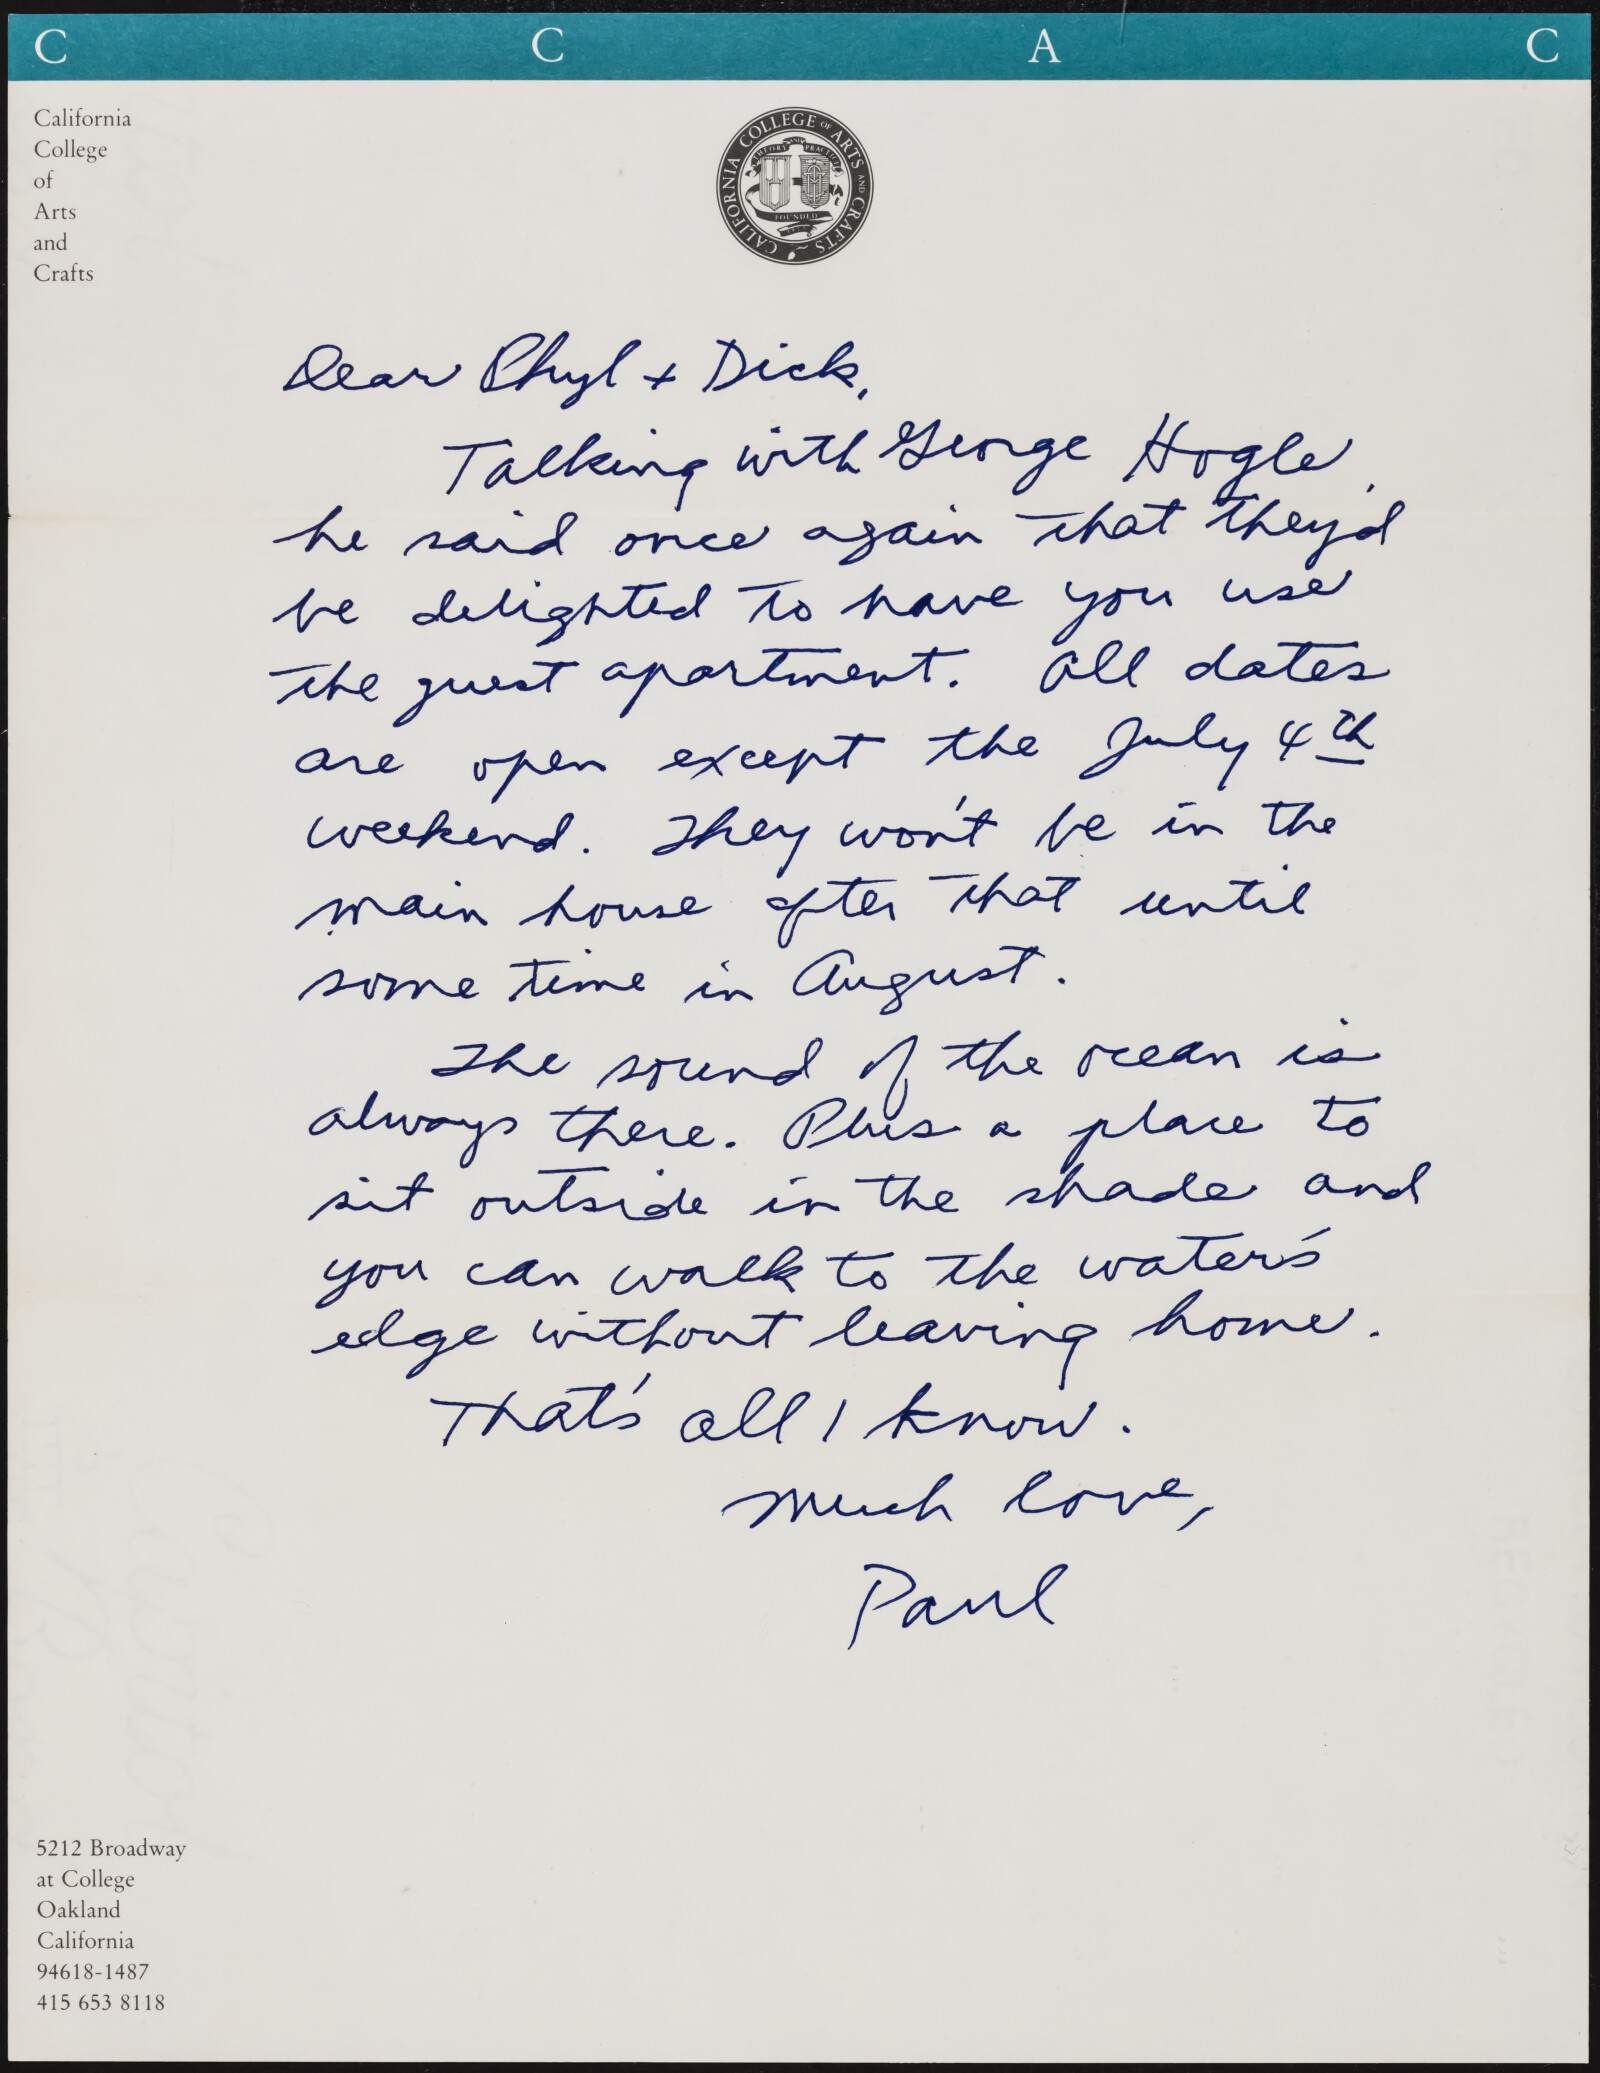 C C A C
California
College
of
Arts
and
Crafts
CALIFORNIA COLLEGE OF ARTS AND CRAFTS
THEORY AND PRACTICE
FOUNDED
Dear Phyl + Dick,
Talking with George Hogle,
he said once again that they'd
be delighted to have you use
the guest apartment. All dates
are open except the July 4th
weekend. They won't be in the
main house after that until
some time in August.
The sound of the ocean is
always there. Plus a place to
sit outside in the shade and
you can walk to the water's
edge without leaving home.
That's all I know.
Much love,
Paul
5212 Broadway
at College
Oakland
California
94618-1487
415 653 8118